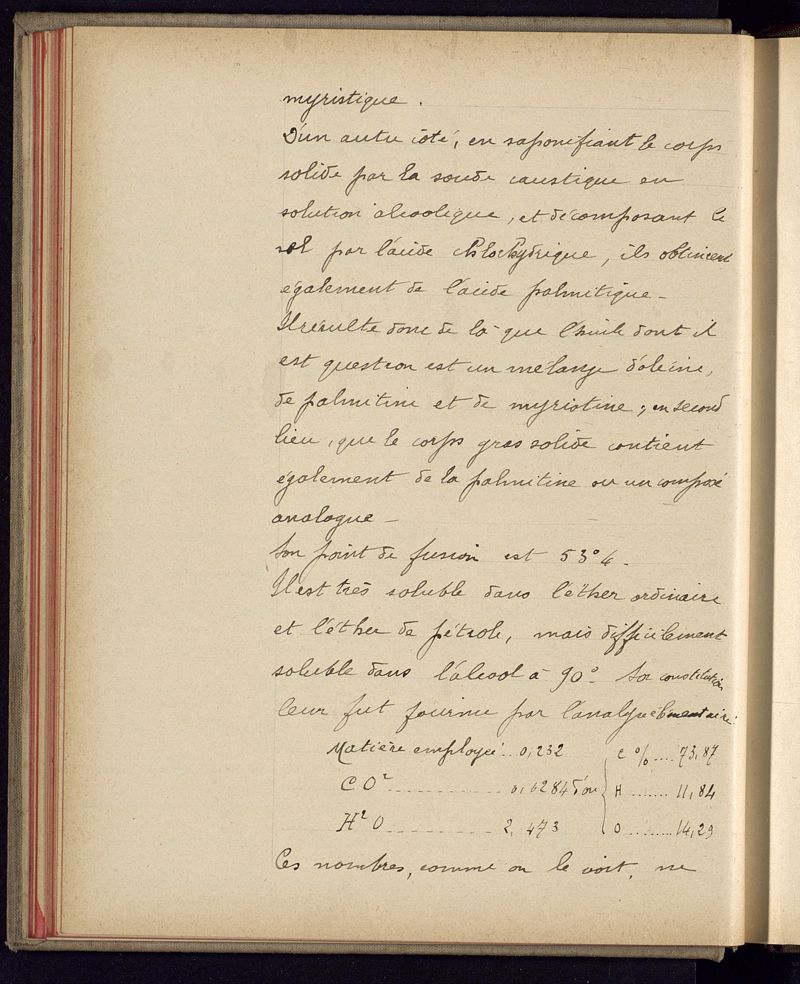 myristique.
D'un autre côté, en saponifiant le corps
solide par la soude caustique en
solution alcoolique, et décomposant le
sel par l'acide chlorhydrique, ils obtinrent
également de l'acide palmitique –
Il résulte donc de là que l'huile dont il
est question est un mélange d'oléine,
de palmitine et de myristine ; en second
lieu, que le corps gras solide contient
également de la palmitine ou un composé
analogue –
Son point de fusion est 53°4 –
Il est très soluble dans l'éther ordinaire
et l'éther de pétrole, mais difficilement
soluble dans l'alcool à 90° – Sa constitution
leur fut fournie par l'analyse élémentaire :
Matière employée .. 0,232 C % .... 73,87
CO² .......... 0,6284 d'où H ....... 11,84
H²O .......... 2,473 O ........ 14,29
Ces nombres, comme on le voit, ne